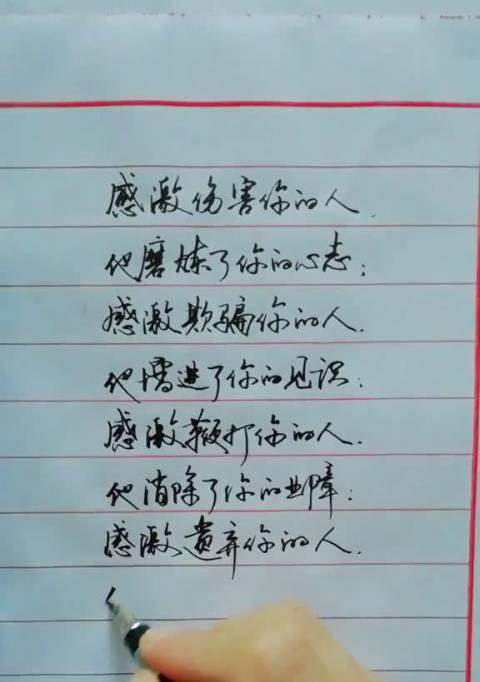 感激伤害你的人.
他磨炼了你的心志;
感激欺骗你的人.
他增进了你的见识;
感激鞭打你的人.
他消除了你的业障;
感激遗弃你的人.